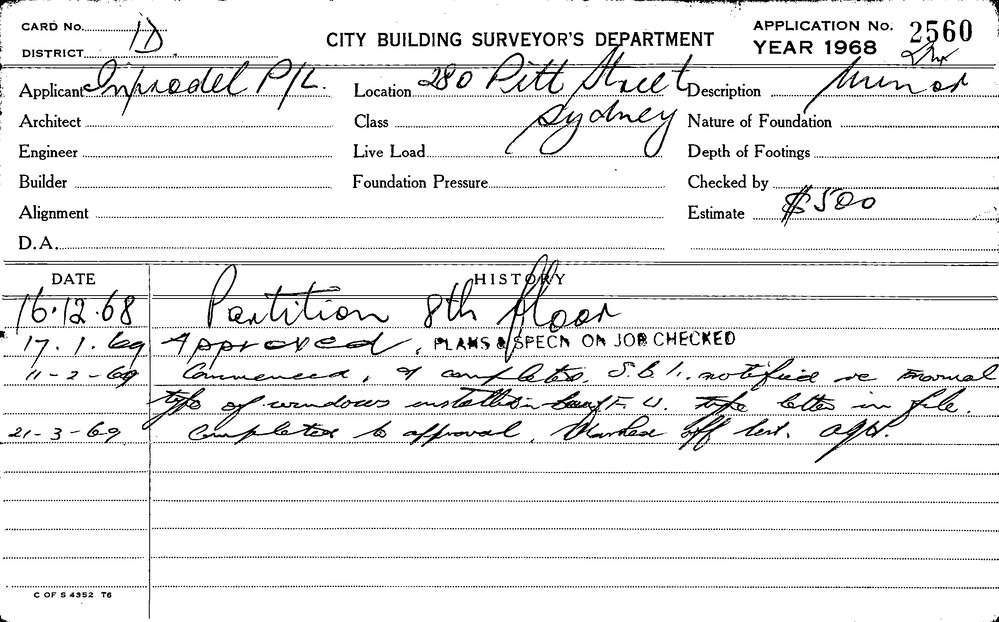 CARD No.
DISTRICT 1D.
CITY BUILDING SURVEYOR'S DEPARTMENT
APPLICATION No. 2560
YEAR 1968
Applicant Inprodel P/L. Location 280 Pitt Street Description Minor
Architect Class Sydney Nature of Foundation
Engineer Live Load Depth of Footings
Builder Foundation Pressure Checked by
Alignment Estimate $500
D.A.
DATE HISTORY
16.12.68 Partition 8th floor
17.1.69 Approved. PLANS & SPECN ON JOB CHECKED
11-2-69 Commenced, & completed. S.B.I. notified re
type of windows installation letter in file.
21-3-69 Completed to approval. Marked off
C OF S 4352 T6